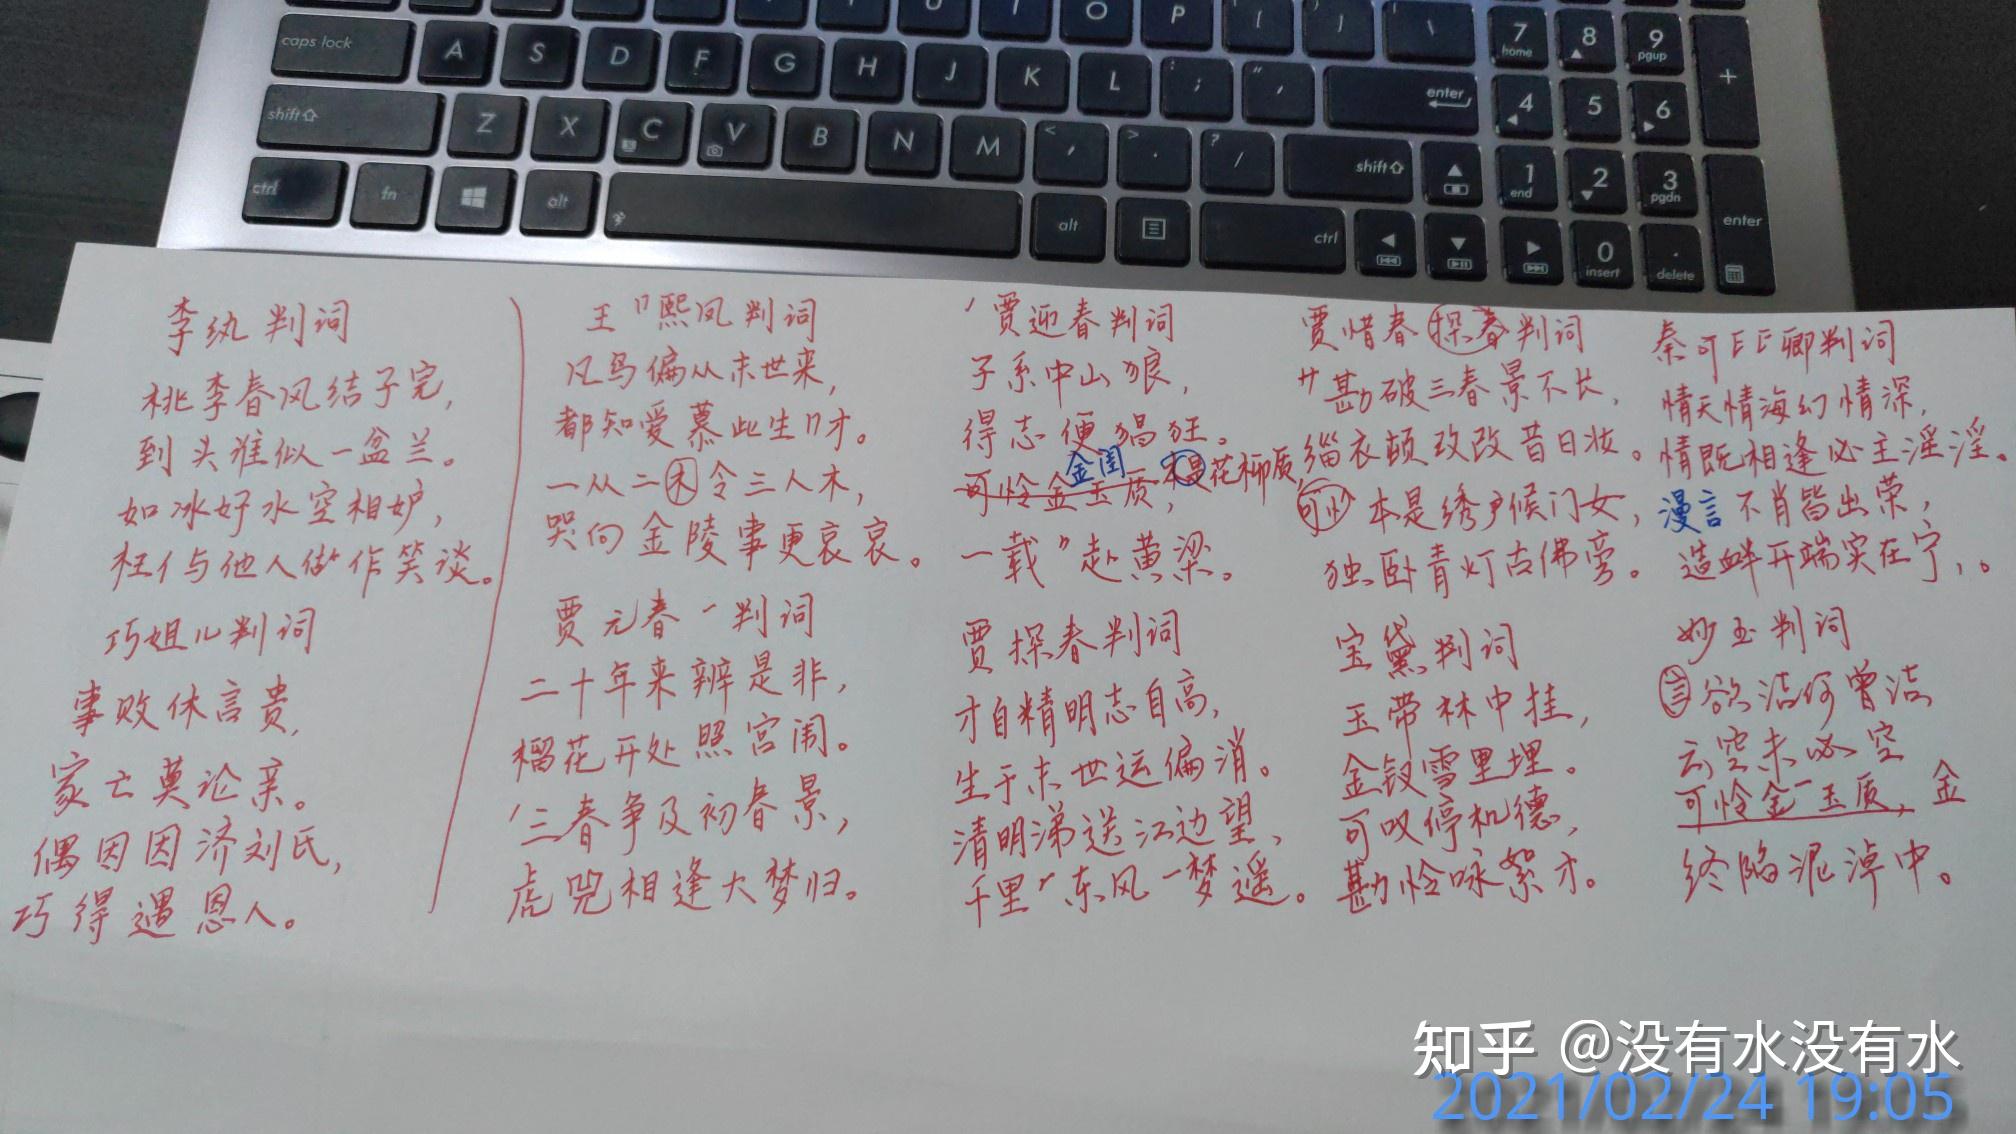 caps lock A S D F G H J K L ; enter
7 home 8 9 pgup +
shift Z X C V B N M < , > . ? / shift
4 5 6
ctrl fn alt alt ctrl
1 end 2 3 pgdn enter
0 insert . delete
O P
李纨判词
桃李春风结子完,
到头谁似一盆兰。
如冰好水空相妒,
枉与他人做作笑谈。
巧姐儿判词
事败休言贵,
家亡莫论亲。
偶因因济刘氏,
巧得遇恩人。
王熙凤判词
凡鸟偏从末世来,
都知爱慕此生才。
一从二木令三人木,
哭向金陵事更哀哀。
贾元春判词
二十年来辨是非,
榴花开处照宫闱。
三春争及初春景,
虎兕相逢大梦归。
贾迎春判词
子系中山狼,
得志便猖狂。
金闺
可怜金玉质, 花柳质,
一载赴黄梁。
贾探春判词
才自精明志自高,
生于末世运偏消。
清明涕送江边望,
千里东风一梦遥。
贾惜春探春判词
勘破三春景不长,
缁衣顿改改昔日妆。
可怜本是绣户候门女,
独卧青灯古佛旁。
宝黛判词
玉带林中挂,
金钗雪里埋。
可叹停机德,
勘怜咏絮才。
秦可卿判词
情天情海幻情深,
情既相逢必主淫淫。
漫言不肖皆出荣,
造衅开端实在宁,。
妙玉判词
言欲洁何曾洁
云空未必空
可怜金玉质, 金
终陷泥淖中。
知乎 @没有水没有水
2021/02/24 19:05